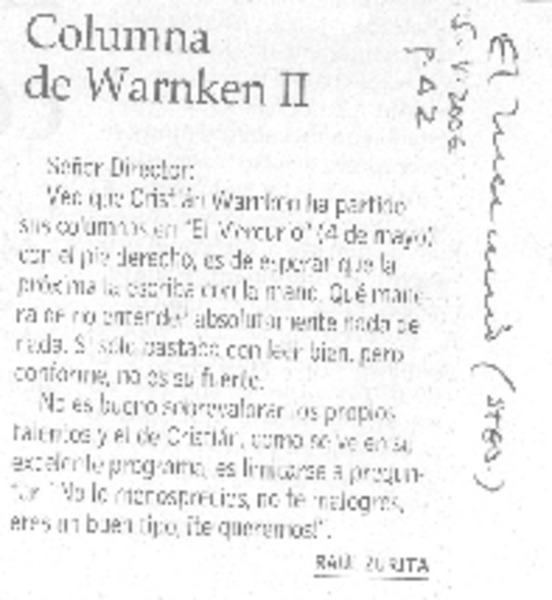 Columna
de Warnken II
Señor Director:
Veo que Cristián Warnken ha partido
sus columnas en "El Mercurio" (4 de mayo)
con el pie derecho, es de esperar que la
próxima la escriba con la mano. Qué mane-
ra de no entender absolutamente nada de
nada. Si sólo bastaba con leer bien, pero
conforme, no es su fuerte.
No es bueno sobrevalorar los propios
talentos y el de Cristián, como se ve en su
excelente programa, es limitarse a pregun-
tar. "No lo menosprecies, no te malogres,
eres un buen tipo, ¡te queremos!".
RAÚL ZURITA
El Mercurio (Stgo.)
5.V.2006
P A 2